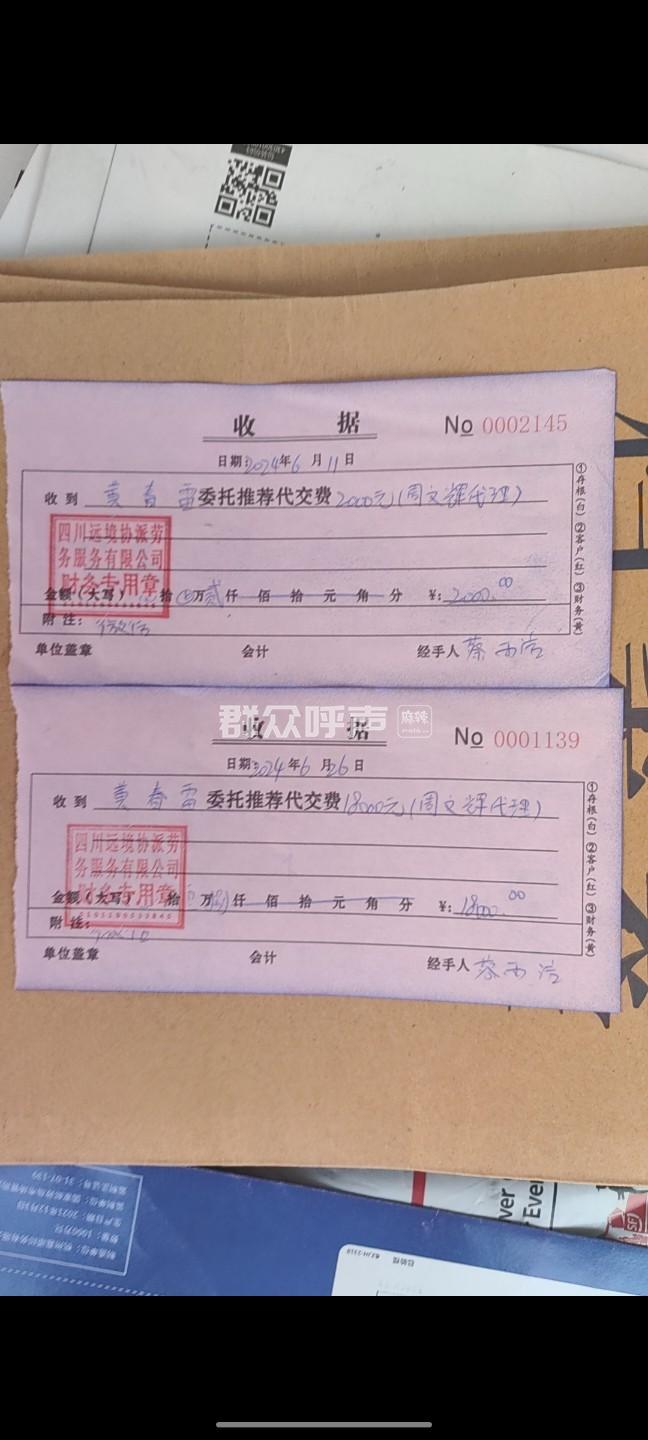 收 据 No 0002145
日期:2024年6月11日
收到 黄春雷 委托推荐代交费 2000元(周文辉代理)
四川远境协派劳
务服务有限公司
财务专用章
金额(大写) 拾 万 贰 仟 佰 拾 元 角 分 ¥: 2000.00
附注: 微信
单位盖章 会计 经手人
①存根(白) ②客户(红) ③财务(黄)
群众呼声 麻辣
收 据 No 0001139
日期:2024年6月26日
收到 黄春雷 委托推荐代交费 18000元(周文辉代理)
四川远境协派劳
务服务有限公司
财务专用章
金额(大写) 拾 万 捌 仟 佰 拾 元 角 分 ¥: 18000.00
附注:
单位盖章 会计 经手人
①存根(白) ②客户(红) ③财务(黄)
ver
Ever